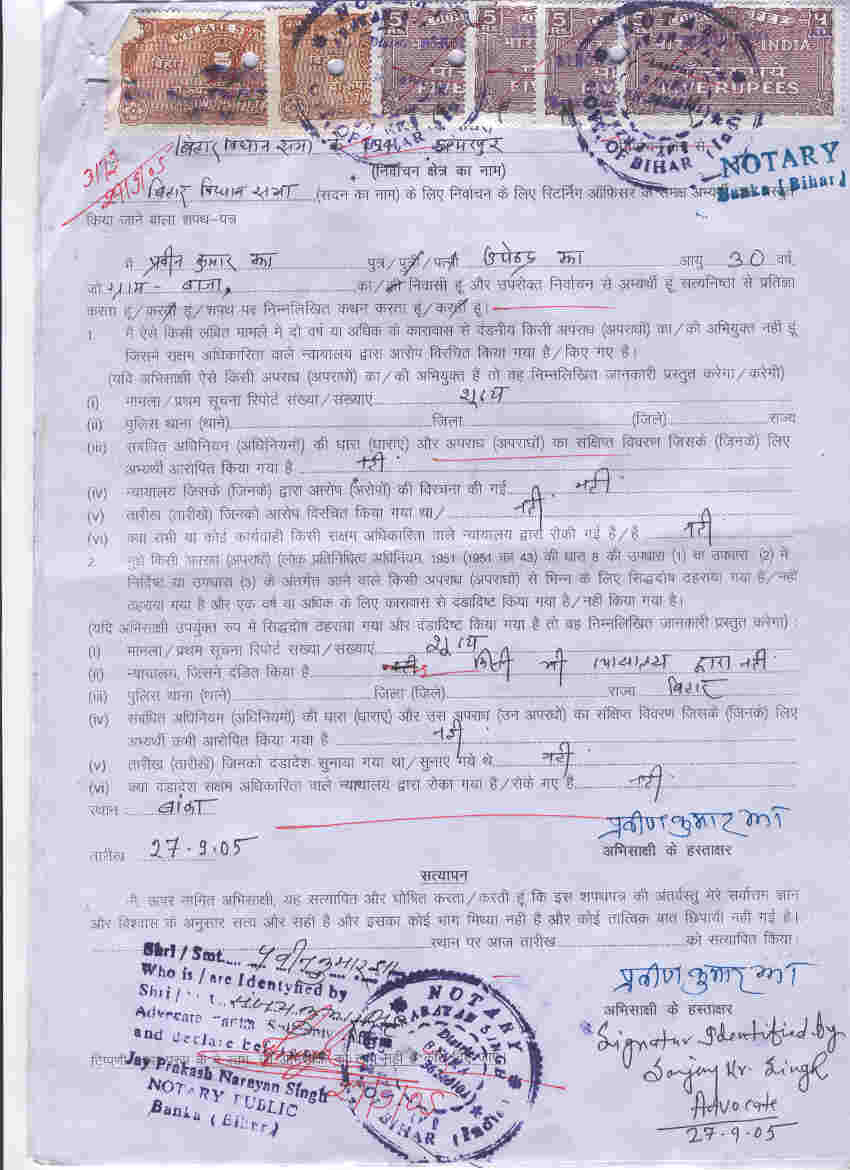 WELFARE STAMP
बिहार
5 5 5 5 ५
भारत INDIA
पाँच रुपये
FIVE FIVE RUPEES
NOTARY
GOVT. OF BIHAR
(बिहार विधान सभा) के अमरपुर
(निर्वाचन क्षेत्र का नाम)
NOTARY
Banka (Bihar)
बिहार विधान सभा (सदन का नाम) के लिए निर्वाचन के लिए रिटर्निंग ऑफिसर के समक्ष
किया जाने वाला शपथ-पत्र
मैं प्रवीन कुमार झा पुत्र/पुत्री/पत्नी उपेन्द्र झा आयु 30 वर्ष,
जो ग्राम - का/की निवासी हूं और उपरोक्त निर्वाचन से अभ्यर्थी हूं सत्यनिष्ठा से प्रतिज्ञा
करता हूं/करती हूं/शपथ पर निम्नलिखित कथन करता हूं/करती हूं।
1. मैं ऐसे किसी लंबित मामले में दो वर्ष या अधिक के कारावास से दंडनीय किसी अपराध (अपराधों) का/की अभियुक्त नहीं हूं
जिसमें सक्षम अधिकारिता वाले न्यायालय द्वारा आरोप विरचित किया गया है/किए गए है।
(यदि अभिसाक्षी ऐसे किसी अपराध (अपराधों) का/की अभियुक्त है तो वह निम्नलिखित जानकारी प्रस्तुत करेगा/करेगी)
(i) मामला/प्रथम सूचना रिपोर्ट संख्या/संख्याएं शून्य
(ii) पुलिस थाना (थाने) जिला (जिले) राज्य
(iii) संबंधित अधिनियम (अधिनियमों) की धारा (धाराएं) और अपराध (अपराधों) का संक्षिप्त विवरण जिसके (जिनके) लिए
अभ्यर्थी आरोपित किया गया है नहीं
(iv) न्यायालय जिसके (जिनके) द्वारा आरोप (आरोपों) की विरचना की गई नहीं
(v) तारीख (तारीखें) जिनको आरोप विरचित किया गया था/ नहीं
(vi) क्या सभी या कोई कार्यवाही किसी सक्षम अधिकारिता वाले न्यायालय द्वारा रोकी गई है/हैं नहीं
2. मुझे किसी अपराध (अपराधों) (लोक प्रतिनिधित्व अधिनियम, 1951 (1951 का 43) की धारा 8 की उपधारा (1) या उपधारा (2) में
निर्दिष्ट या उपधारा (3) के अंतर्गत आने वाले किसी अपराध (अपराधों) से भिन्न के लिए सिद्धदोष ठहराया गया है/नहीं
ठहराया गया है और एक वर्ष या अधिक के लिए कारावास से दंडादिष्ट किया गया है/नहीं किया गया है।
(यदि अभिसाक्षी उपर्युक्त रूप में सिद्धदोष ठहराया गया और दंडादिष्ट किया गया है तो वह निम्नलिखित जानकारी प्रस्तुत करेगा) :
(i) मामला/प्रथम सूचना रिपोर्ट संख्या/संख्याएं शून्य
(ii) न्यायालय, जिसने दंडित किया है किसी भी न्यायालय द्वारा नहीं
(iii) पुलिस थाना (थाने) जिला (जिले) राज्य बिहार
(iv) संबंधित अधिनियम (अधिनियमों) की धारा (धाराएं) और उस अपराध (उन अपराधों) का संक्षिप्त विवरण जिसके (जिनके) लिए
अभ्यर्थी कभी आरोपित किया गया है नहीं
(v) तारीख (तारीखें) जिनको दंडादेश सुनाया गया था/सुनाए गये थे नहीं
(vi) क्या दंडादेश सक्षम अधिकारिता वाले न्यायालय द्वारा रोका गया है/रोके गए हैं नहीं
स्थान : बांका
प्रवीण कुमार झा
तारीख 27.9.05
अभिसाक्षी के हस्ताक्षर
सत्यापन
मैं, ऊपर नामित अभिसाक्षी, यह सत्यापित और घोषित करता/करती हूं कि इस शपथपत्र की अंतर्वस्तु मेरे सर्वोत्तम ज्ञान
और विश्वास के अनुसार सत्य और सही है और इसका कोई भाग मिथ्या नहीं है और कोई तात्विक बात छिपायी नहीं गई है।
स्थान पर आज तारीख को सत्यापित किया।
Shri / Smt. प्रवीन कुमार झा
Who is / are Identyfied by
Shri /
Advocate
and declare
Jay Prakash Narayan Singh
NOTARY PUBLIC
Banka (Bihar)
NOTARY
NARAYAN SINGH
BIHAR
प्रवीण कुमार झा
अभिसाक्षी के हस्ताक्षर
Signatur Identified by
Sanjay Kr. Singh
Advocate
27-9-05